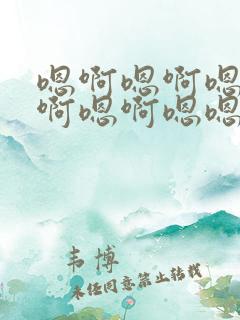 嗯啊嗯啊嗯
啊嗯啊嗯嗯
韦博
未经同意禁止转载